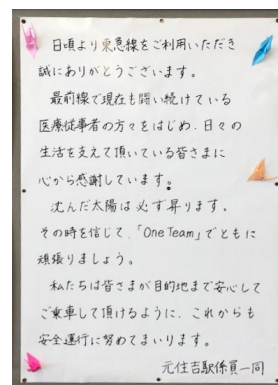 日頃より東急線をご利用いただき
誠にありがとうございます。
最前線で現在も闘い続けている
医療従事者の方々をはじめ、日々の
生活を支えて頂いている皆さまに
心から感謝しています。
沈んだ太陽は必ず昇ります。
その時を信じて、「One Team」でともに
頑張りましょう。
私たちは皆さまが目的地まで安心して
ご乗車して頂けるように、これからも
安全運行に努めてまいります。
元住吉駅係員一同